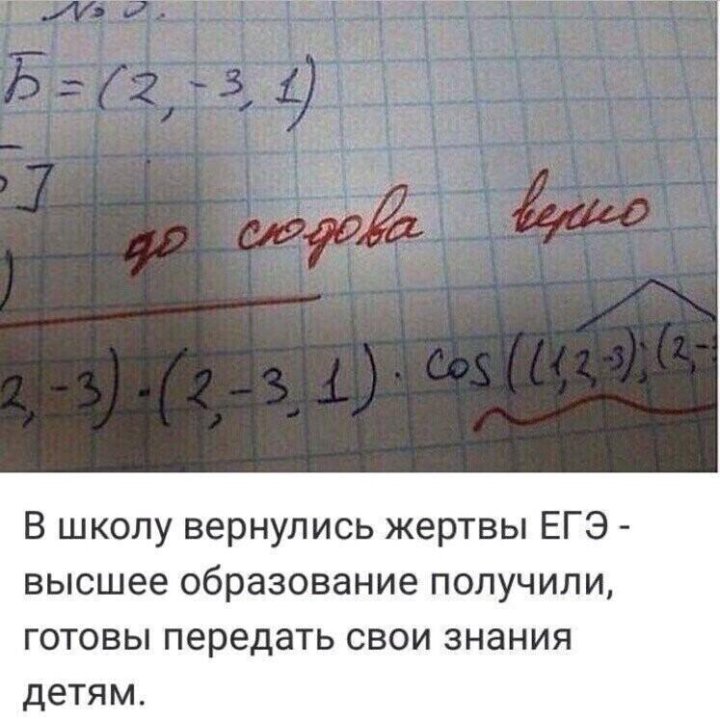 №
Б̅ = (2, -3, 1)
]
до сюдова верно
)
2, -3) · (2, -3, 1) · cos((1,2,-3); (2,-
В школу вернулись жертвы ЕГЭ -
высшее образование получили,
готовы передать свои знания
детям.